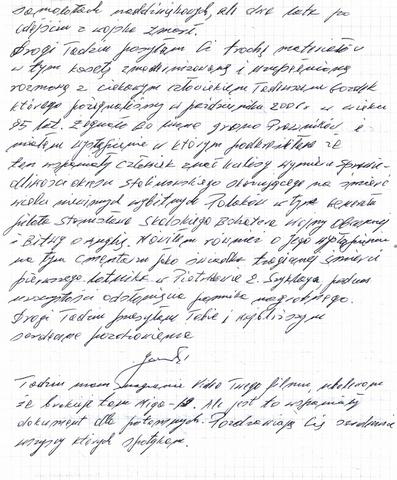 samolotach naddźwiękowych, ale dwa lata po
odejściu z wojska zmarł.
Drogi Tadziu posyłam Ci trochę materiałów
w tym kasetę zmodernizowaną i uzupełnioną
rozmową z ciekawym człowiekiem Tadeuszem
którego pożegnaliśmy w październiku w wieku
95 lat. Żegnało Go grono Prawników i
miałem wystąpienie w którym podkreśliłem że
ten wspaniały człowiek znał kulisy wymiaru sprawie-
dliwości okresu stalinowskiego skazującego na śmierć
wielu niewinnych wybitnych Polaków w tym Generała
pilota Stanisława Skalskiego Bohatera wojny obronnej
i Bitwy o Anglię. Mówiłem również o Jego wystąpieniu
na tym cmentarzu jako świadka tragicznej śmierci
pierwszego lotnika w Piotrkowie podczas
uroczystości odsłonięcia pomnika nagrobnego.
Drogi Tadziu przesyłam Tobie i najbliższym
serdeczne pozdrowienia
Tadziu mam nagranie Video Twego filmu, ubolewam
że brakuje tam Miga-. Ale jest to wspaniały
dokument dla potomnych. Pozdrawiają Cię serdecznie
wszyscy których spotykam.